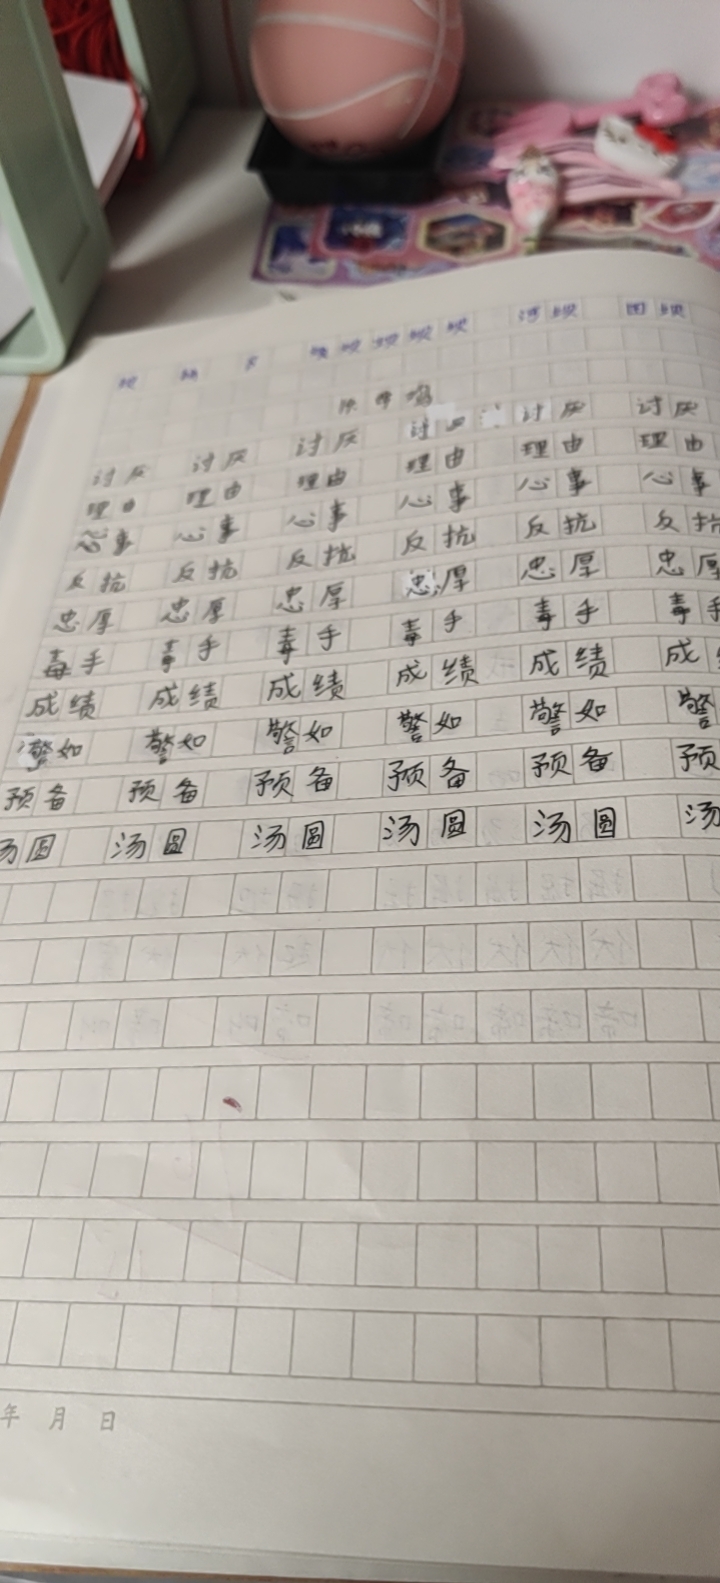 讨厌 讨厌 讨厌 讨厌 讨厌 讨厌
理由 理由 理由 理由 理由 理由
心事 心事 心事 心事 心事 心事
反抗 反抗 反抗 反抗 反抗 反抗
忠厚 忠厚 忠厚 忠厚 忠厚 忠厚
毒手 毒手 毒手 毒手 毒手 毒手
成绩 成绩 成绩 成绩 成绩 成绩
警如 警如 警如 警如 警如 警
预备 预备 预备 预备 预备 预
汤圆 汤圆 汤圆 汤圆 汤圆 汤
年 月 日